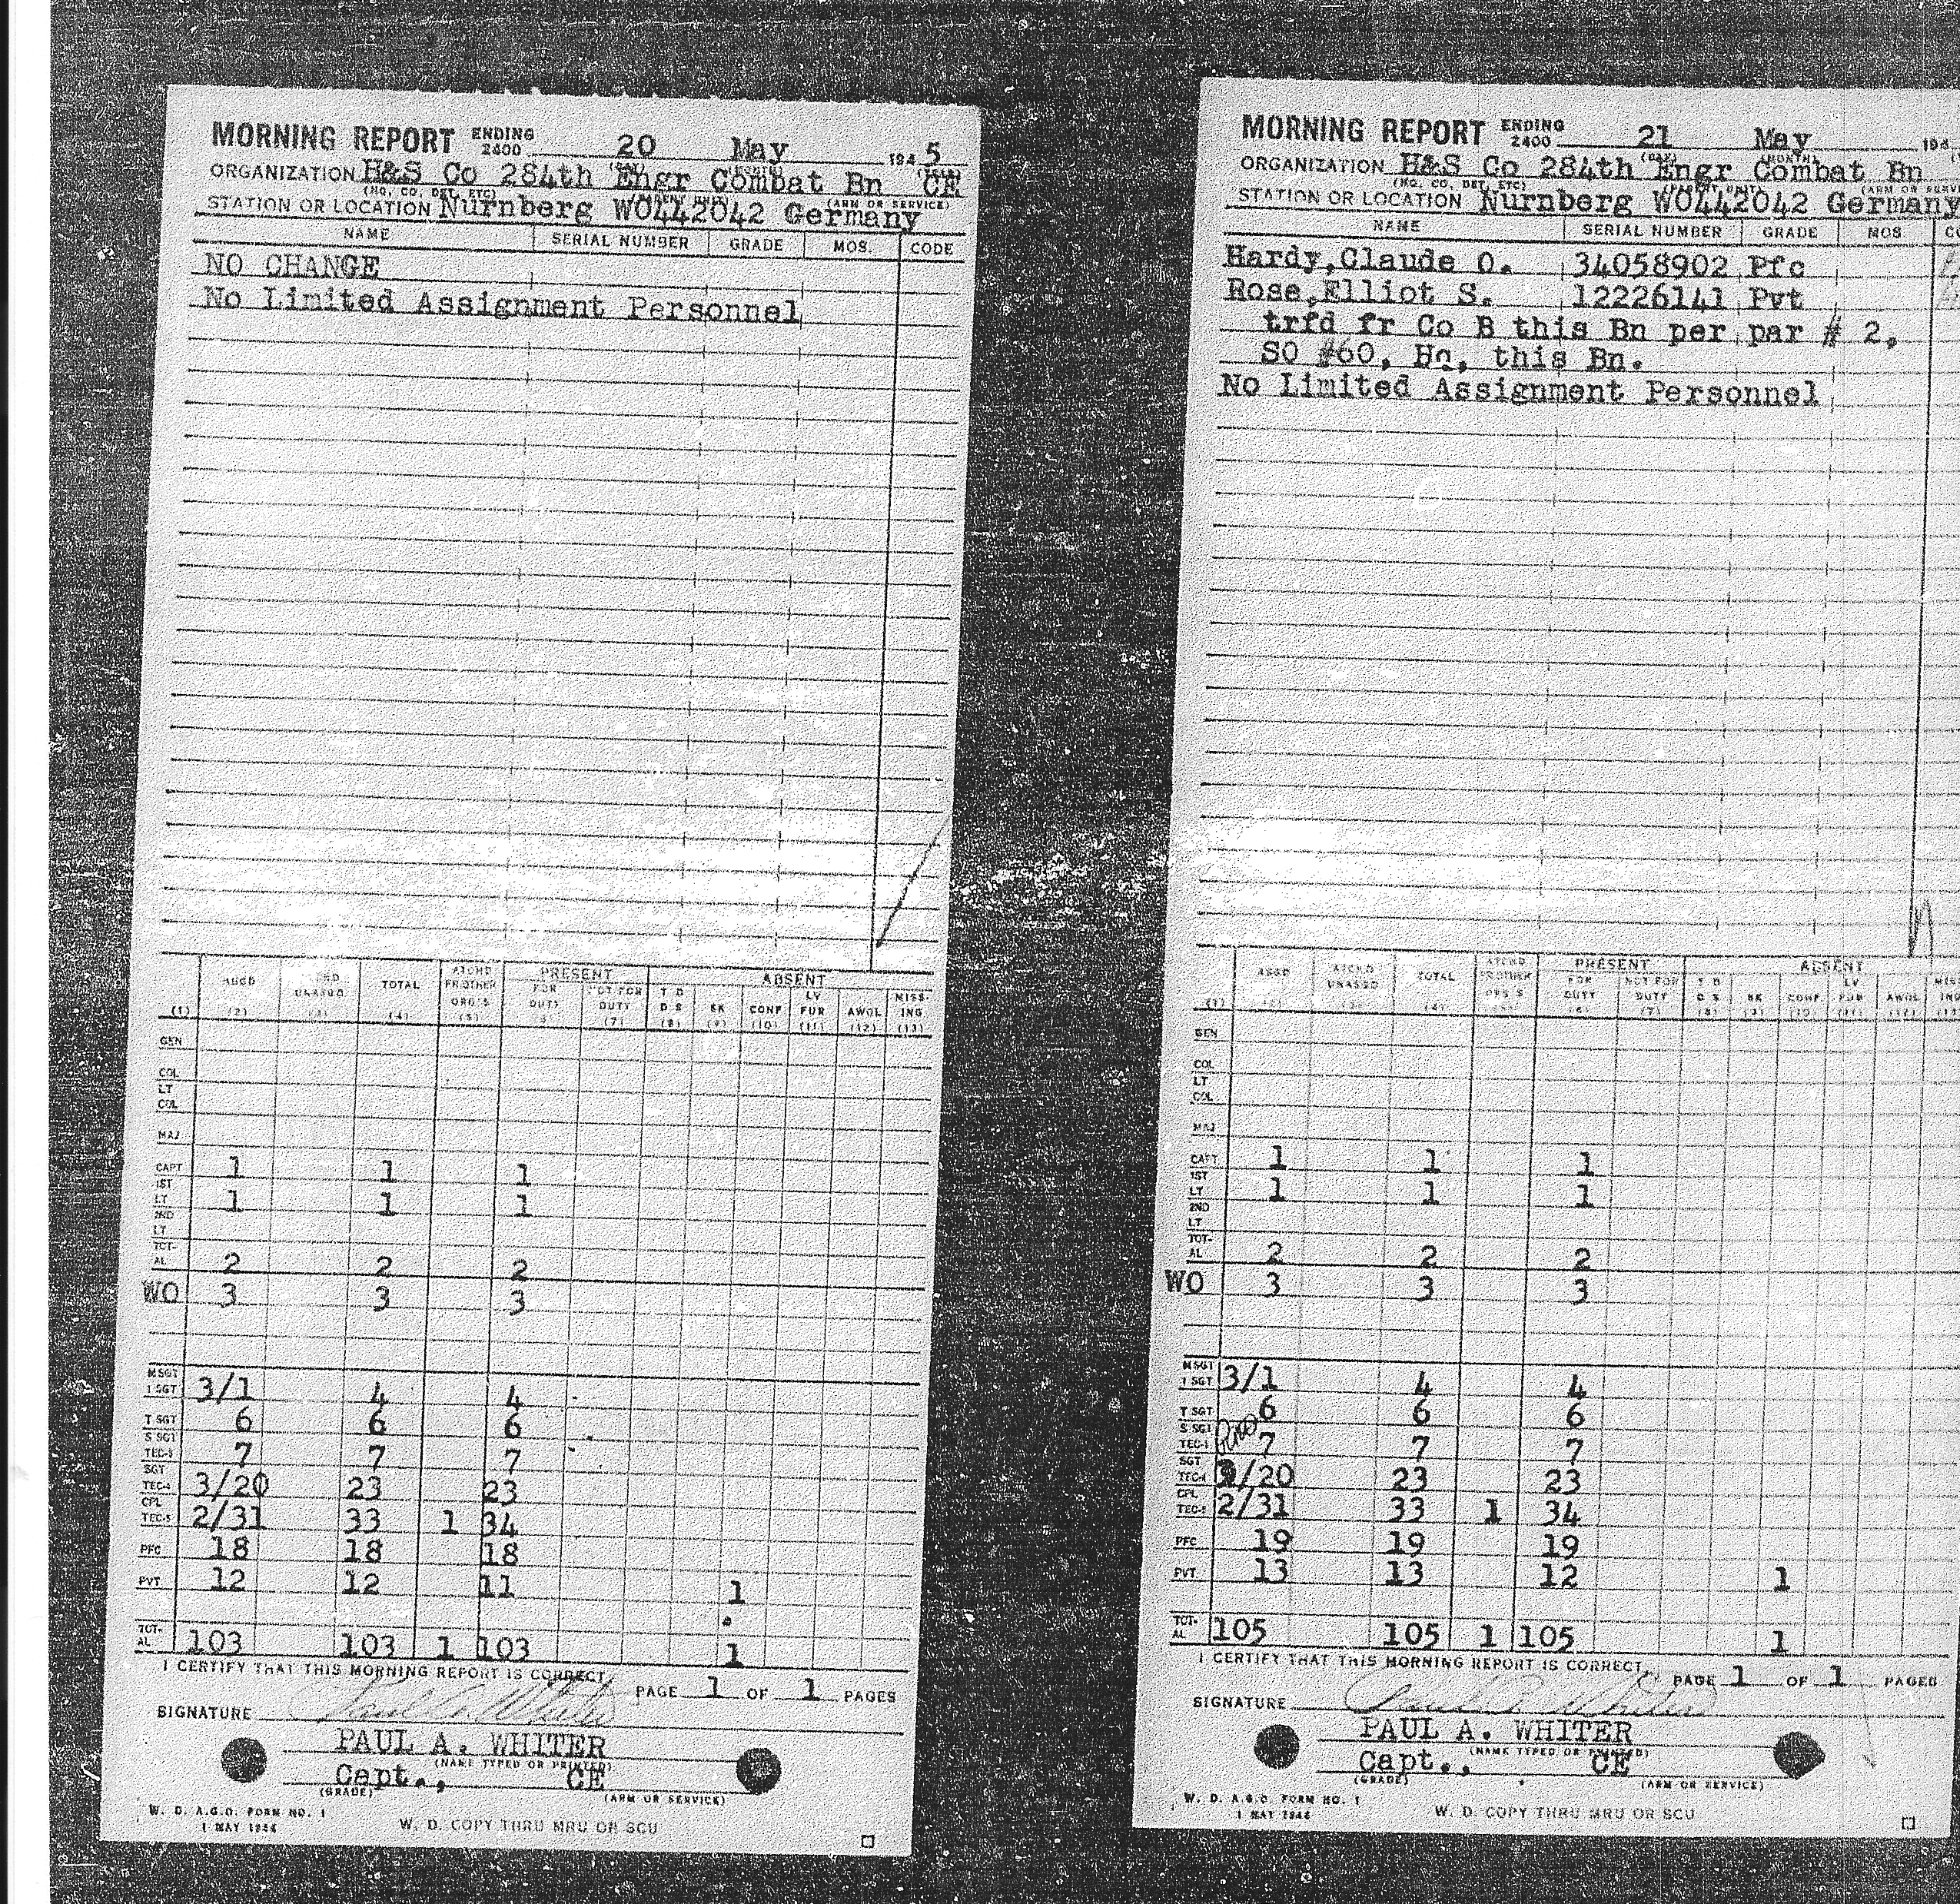 MORNING REPORT ENDING 2400 20 May 1945
ORGANIZATION H&S Co 284th Engr Combat Bn CE
(HQ, CO, DET, ETC) (ARM OR SERVICE)
STATION OR LOCATION Nurnberg WO442042 Germany
NAME SERIAL NUMBER GRADE MOS. CODE
NO CHANGE
No Limited Assignment Personnel
PRESENT ABSENT
(1) ASGD (2) UNASGD (3) TOTAL (4) ATCHD FR OTHER ORG'S (5) FOR DUTY 6) NOT FOR DUTY (7) T D D S (8) SK (9) CONF (10) LV FUR (11) AWOL (12) MISS- ING (13)
GEN
COL
LT COL
MAJ
CAPT 1 1 1
1ST LT 1 1 1
2ND LT
TOT- AL 2 2 2
WO 3 3 3
M SGT 1 SGT 3/1 4 4
T SGT 6 6 6
S SGT TEC-3 7 7 7
SGT TEC-4 3/20 23 23
CPL TEC-5 2/31 33 1 34
PFC 18 18 18
PVT 12 12 11 1
TOT- AL 103 103 1 103 1
I CERTIFY THAT THIS MORNING REPORT IS CORRECT
PAGE 1 OF 1 PAGES
SIGNATURE Paul A. Whiter
PAUL A. WHITER
(NAME TYPED OR PRINTED)
Capt., CE
(GRADE) (ARM OR SERVICE)
W. D. A.G.O. FORM NO. 1
1 MAY 1944
W. D. COPY THRU MRU OR SCU
MORNING REPORT ENDING 2400 21 May 194
(DAY) (MONTH)
ORGANIZATION H&S Co 284th Engr Combat Bn
(HQ, CO, DET, ETC) (PARENT UNIT) (ARM OR SERVI
STATION OR LOCATION Nurnberg WO442042 Germany
NAME SERIAL NUMBER GRADE MOS CO
Hardy,Claude O. 34058902 Pfc
Rose,Elliot S. 12226141 Pvt
trfd fr Co B this Bn per par # 2,
SO #60, Hq, this Bn.
No Limited Assignment Personnel
PRESENT ABSENT
(1) ASGD (2) ATCHD UNASGD (3) TOTAL (4) ATCHD FR OTHER ORG'S (5) FOR DUTY (6) NOT FOR DUTY (7) T D D S (8) SK (9) CONF (10) LV FUR (11) AWOL (12) MISS ING (13
GEN
COL
LT COL
MAJ
CAPT 1 1 1
1ST LT 1 1 1
2ND LT
TOT- AL 2 2 2
WO 3 3 3
M SGT 1 SGT 3/1 4 4
T SGT 6 6 6
S SGT TEC-3 7 7 7
SGT TEC-4 3/20 23 23
CPL TEC-5 2/31 33 1 34
PFC 19 19 19
PVT 13 13 12 1
TOT- AL 105 105 1 105 1
I CERTIFY THAT THIS MORNING REPORT IS CORRECT
PAGE 1 OF 1 PAGES
SIGNATURE Paul A. Whiter
PAUL A. WHITER
(NAME TYPED OR PRINTED)
Capt., CE
(GRADE) (ARM OR SERVICE)
W. D. A.G.O. FORM NO. 1
1 MAY 1944
W. D. COPY THRU MRU OR SCU